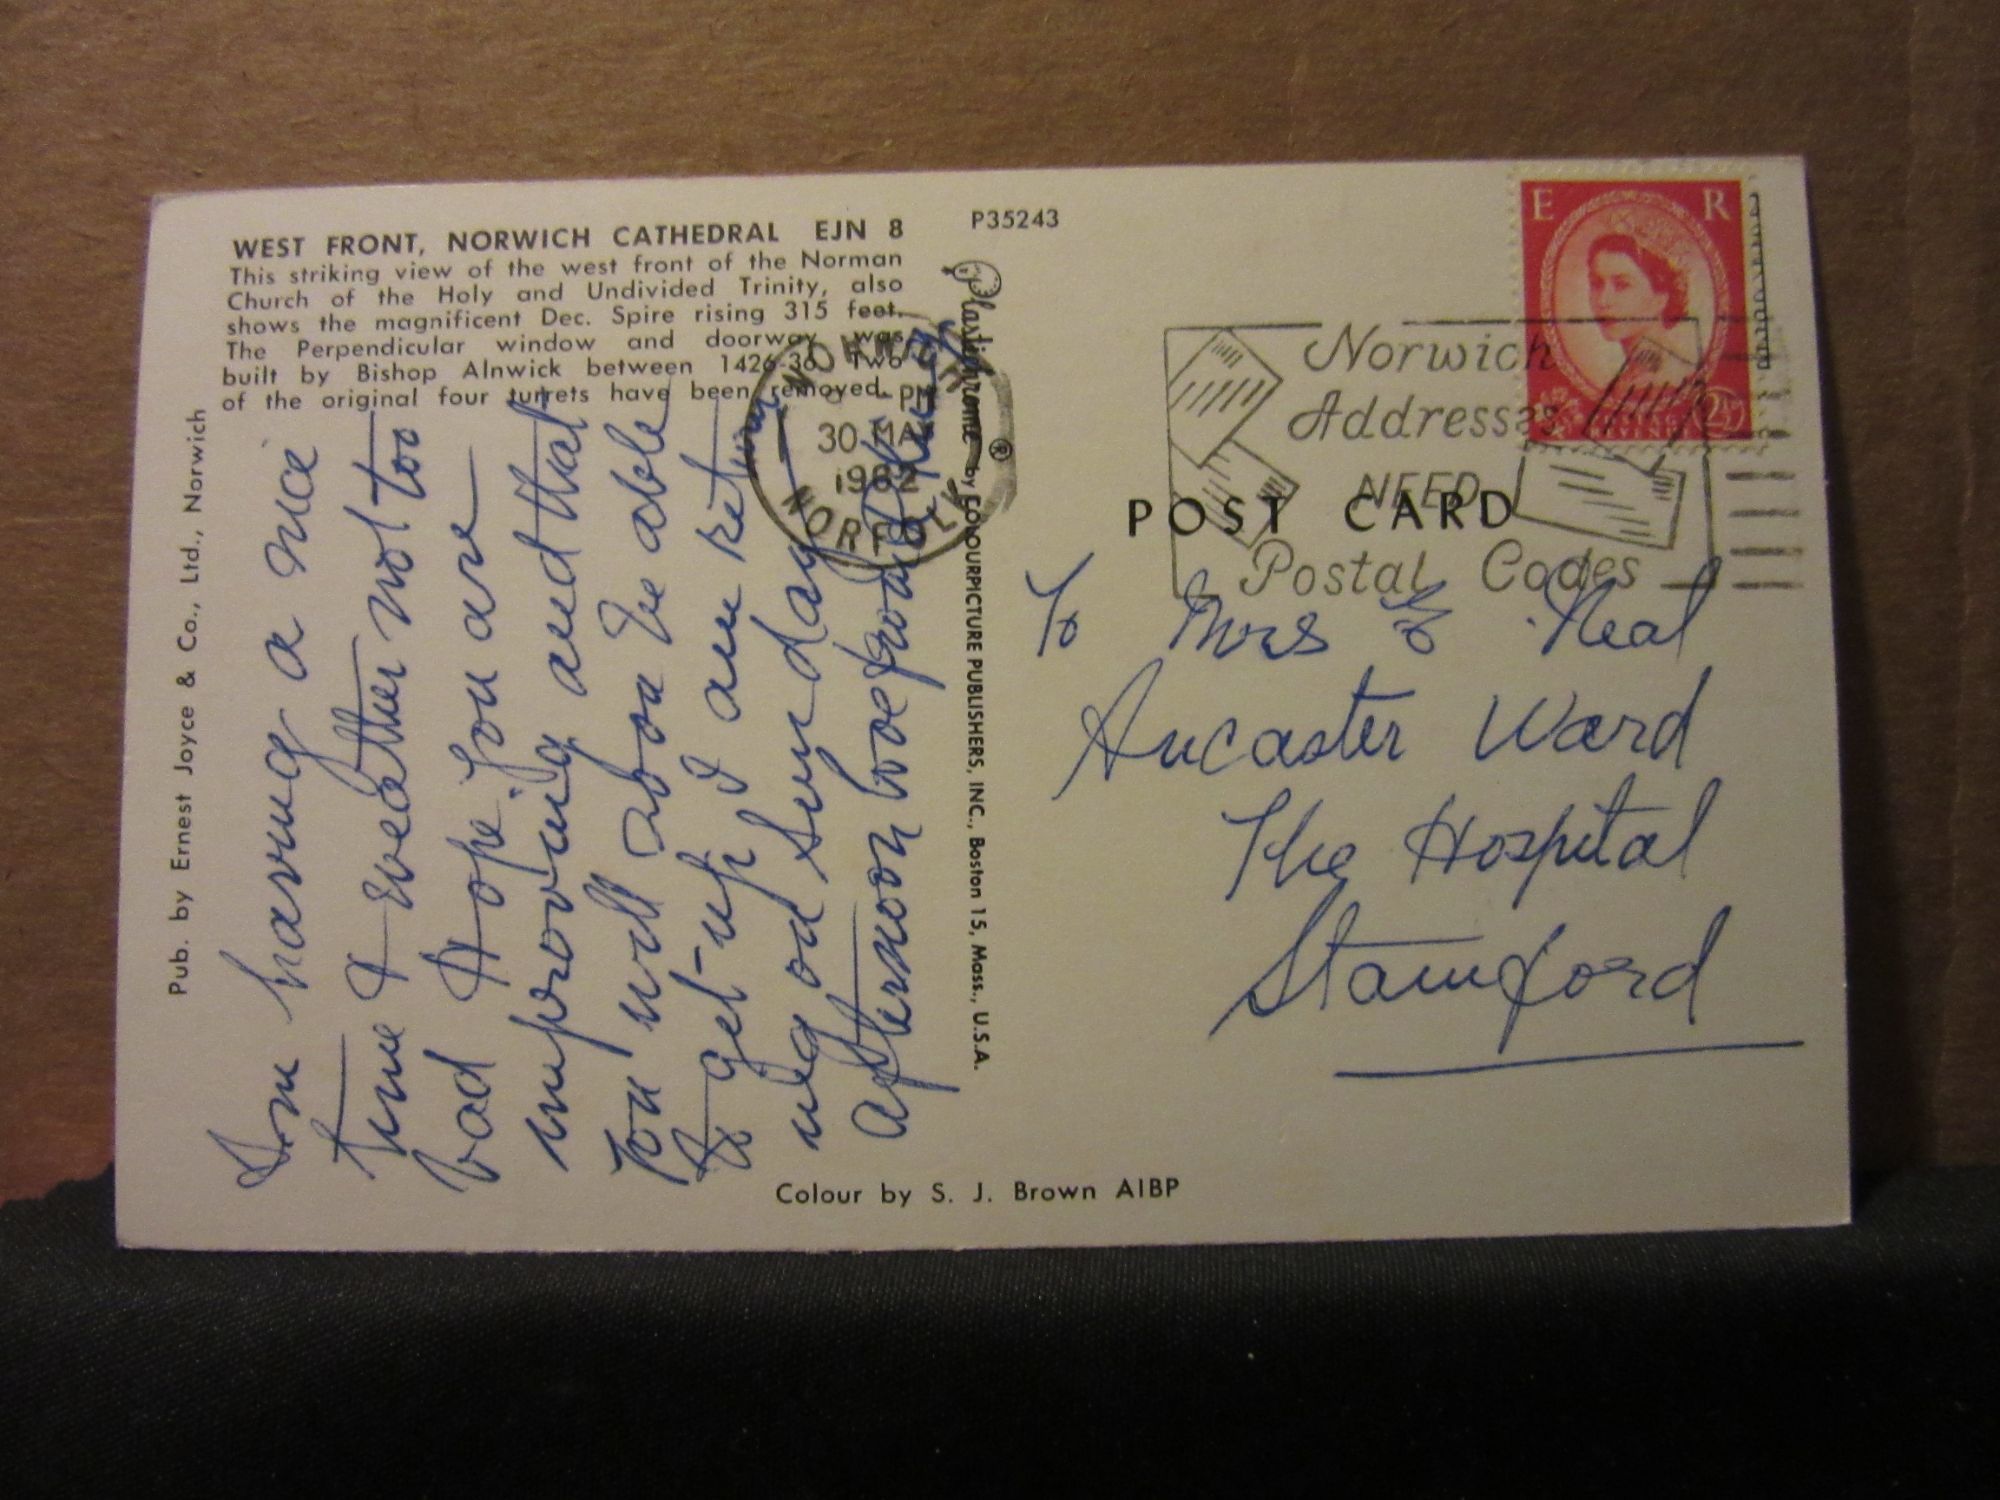 WEST FRONT, NORWICH CATHEDRAL EJN 8
This striking view of the west front of the Norman
Church of the Holy and Undivided Trinity, also
shows the magnificent Dec. Spire rising 315 feet.
The Perpendicular window and doorway was
built by Bishop Alnwick between 1426-36. Two
of the original four turrets have been removed.
Pub. by Ernest Joyce & Co., Ltd., Norwich
Am having a nice
time & weather not too
bad Hope you are
improving and that
you will soon be able
to get-up, I am return
ing on Sunday
afternoon love from
Colour by S. J. Brown AIBP
NORWICH
PM
30 MA
1962
NORFOLK
P35243
Plastichrome ® by COLOURPICTURE PUBLISHERS, INC., Boston 15, Mass., U.S.A.
E R
2½
Norwich
Addresses
NEED
Postal Codes
POST CARD
To Mrs Neal
Ancaster Ward
The Hospital
Stamford